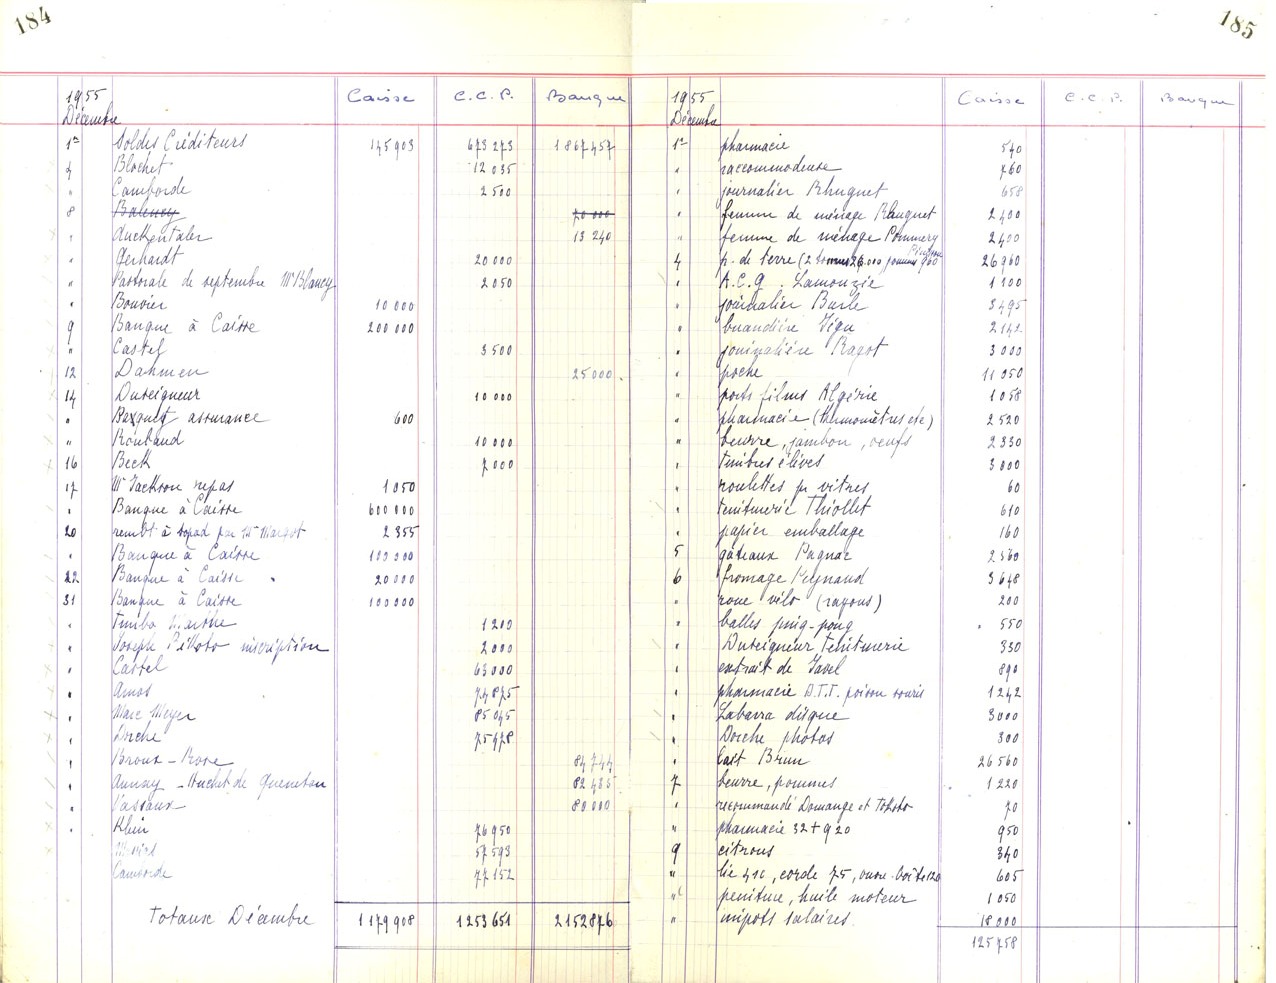 184
1955 Caisse C.C.P. Banque
Décembre
1er Soldes Créditeurs 145 903 673 273 1 867 457
7 Blochet 12 035
" Camborde 2 500
8 Balency 70 000
" 13 240
" Gerhardt 20 000
" Pastorale de septembre Mr Blancy 2 050
" Bouvier 10 000
9 Banque à Caisse 200 000
" Castel 3 500
12 Dahmen 25 000
14 Duteigneur 10 000
" assurance 600
" Roubaud 10 000
16 Beck 7 000
17 Mr Jackson repas 1 050
" Banque à Caisse 600 000
20 rembt à par Mr Margot 2 355
" Banque à Caisse 100 000
22 Banque à Caisse 20 000
31 Banque à Caisse 100 000
" 1 200
" Joseph inscription 2 000
" Castel 63 000
" Amos 74 875
" Marc Meyer 85 045
" Dorche 75 978
" Broux - Rose 84 744
" Aunay - Huchet de Quenetain 82 435
" Vassaux 80 000
" Klein 76 950
57 593
Camborde 77 152
Totaux Décembre 1 179 908 1 253 651 2 152 876
185
1955 Caisse C.C.P. Banque
Décembre
1er pharmacie 540
" raccommodeuse 760
" journalier Rhuguet 658
" femme de ménage Rhuguet 2 400
" femme de ménage Pommery 2 400
4 p. de terre (2 tonnes 26.000 pommes 960 26 960
" A.C.G. Lamouzie 1 100
" journalier Barle 3 495
" buandière Jégu 2 142
" journalière Ragot 3 000
" poche 11 050
" ports films Algérie 1 058
" pharmacie (thermomètres etc) 2 520
" beurre, jambon, oeufs 2 330
" timbres élèves 3 000
" roulettes pr vitres 60
" teinturerie Thiollet 610
" papier emballage 160
5 gâteaux Pagnac 2 560
6 fromage Peynaud 3 648
" roue vélo (rayons) 200
" balles ping-pong 550
" Duteigneur teinturerie 330
" extrait de Javel 890
" pharmacie D.T.T. poison souris 1 242
" Labarra disque 3 000
" Dorche photos 300
" Cart Brun 26 560
7 beurre, pommes 1 220
" recommandé Domange et Tokoto 70
" pharmacie 32 + 920 950
9 citrons 340
" lie 410, corde 75, ouvre-boîte 120 605
" peinture, huile moteur 1 050
" impots salaires 18 000
125 758